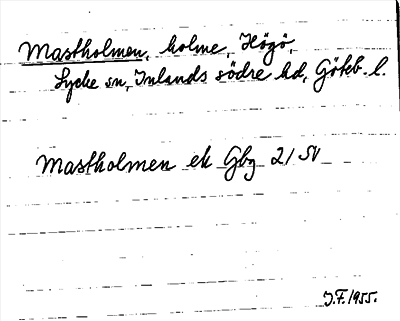 Mastholmen, holme, Högö,
Lycke sn, Inlands södre hd, Göteb. l.
Mastholmen ek Gbg 21 SV
J.F. 1955.